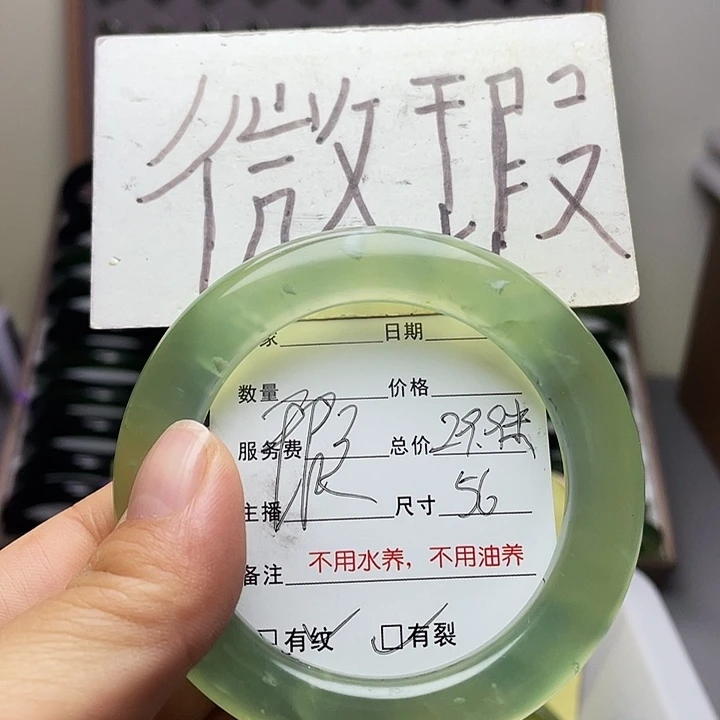 微瑕
家 日期
数量 价格
服务费 瑕 总价 29.9
主播 尺寸 56
备注 不用水养，不用油养
有纹 有裂